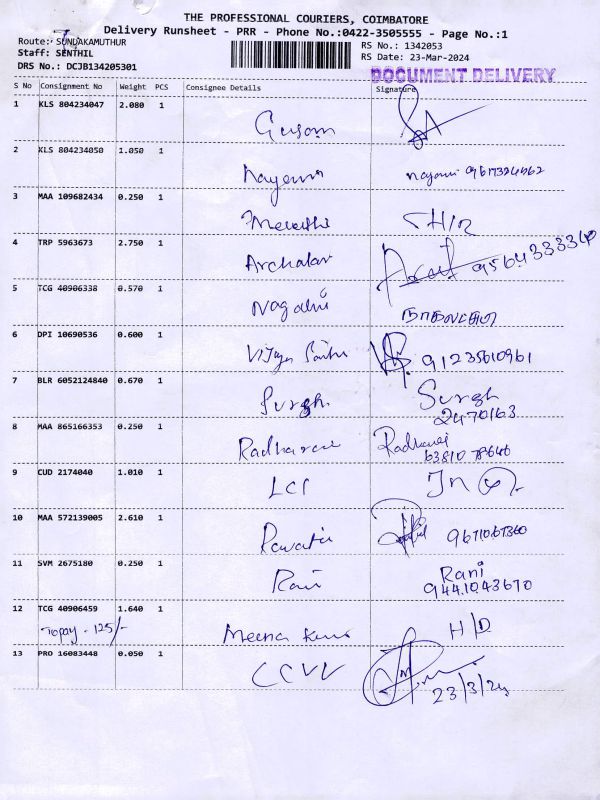 THE PROFESSIONAL COURIERS, COIMBATORE
Delivery Runsheet - PRR - Phone No.:0422-3505555 - Page No.:1
Route:- SUNDAKAMUTHUR
RS No.: 1342053
Staff: SENTHIL
RS Date: 23-Mar-2024
DRS No.: DCJB134205301
DOCUMENT DELIVERY
S No Consignment No Weight PCS Consignee Details Signature
1 KLS 804234047 2.080 1
2 KLS 804234050 1.050 1
3 MAA 109682434 0.250 1
4 TRP 5963673 2.750 1 Archalar
5 TCG 40906338 0.570 1
6 DPI 10690536 0.600 1 91235610961
7 BLR 6052124840 0.670 1 Surgh Surgh
2470163
8 MAA 865166353 0.250 1
9 CUD 2174040 1.010 1
10 MAA 572139005 2.610 1
11 SVM 2675180 0.250 1 Rani Rani
9441043670
12 TCG 40906459 1.640 1 Meena H/D
Topay - 125/-
13 PRO 16083448 0.050 1 CCVV
23/3/24